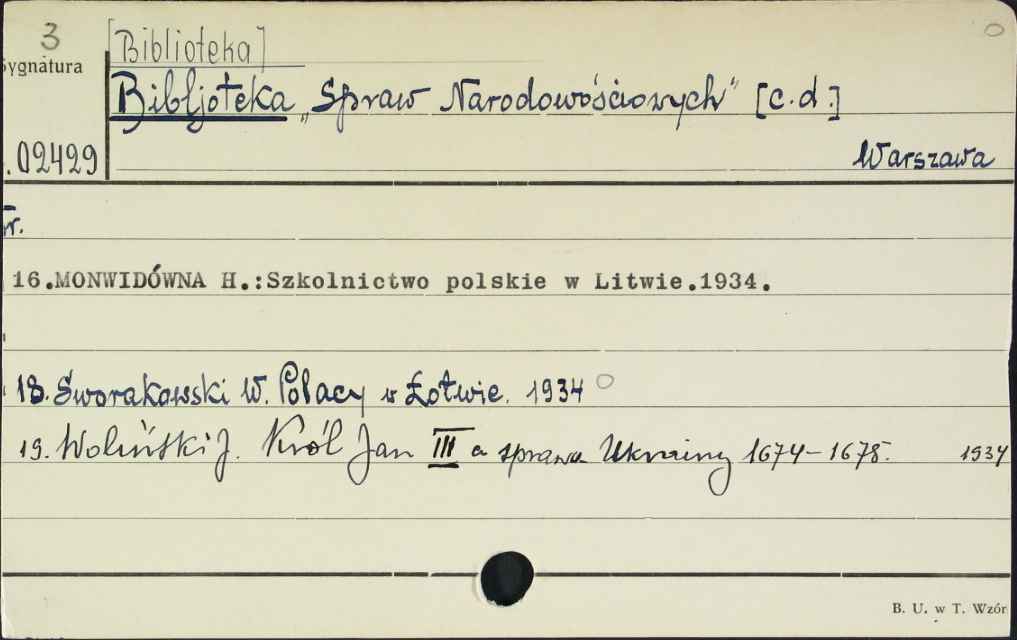 3 [Biblioteka]
Sygnatura
Bibljoteka „Spraw Narodowościowych" [c.d.]
02429
Warszawa
nr.
16.MONWIDÓWNA H.:Szkolnictwo polskie w Litwie.1934.
18. Sworakowski W. Polacy w Łotwie. 1934
19. Woliński J. Król Jan III a sprawa Ukrainy 1674-1678. 1934
B. U. w T. Wzór